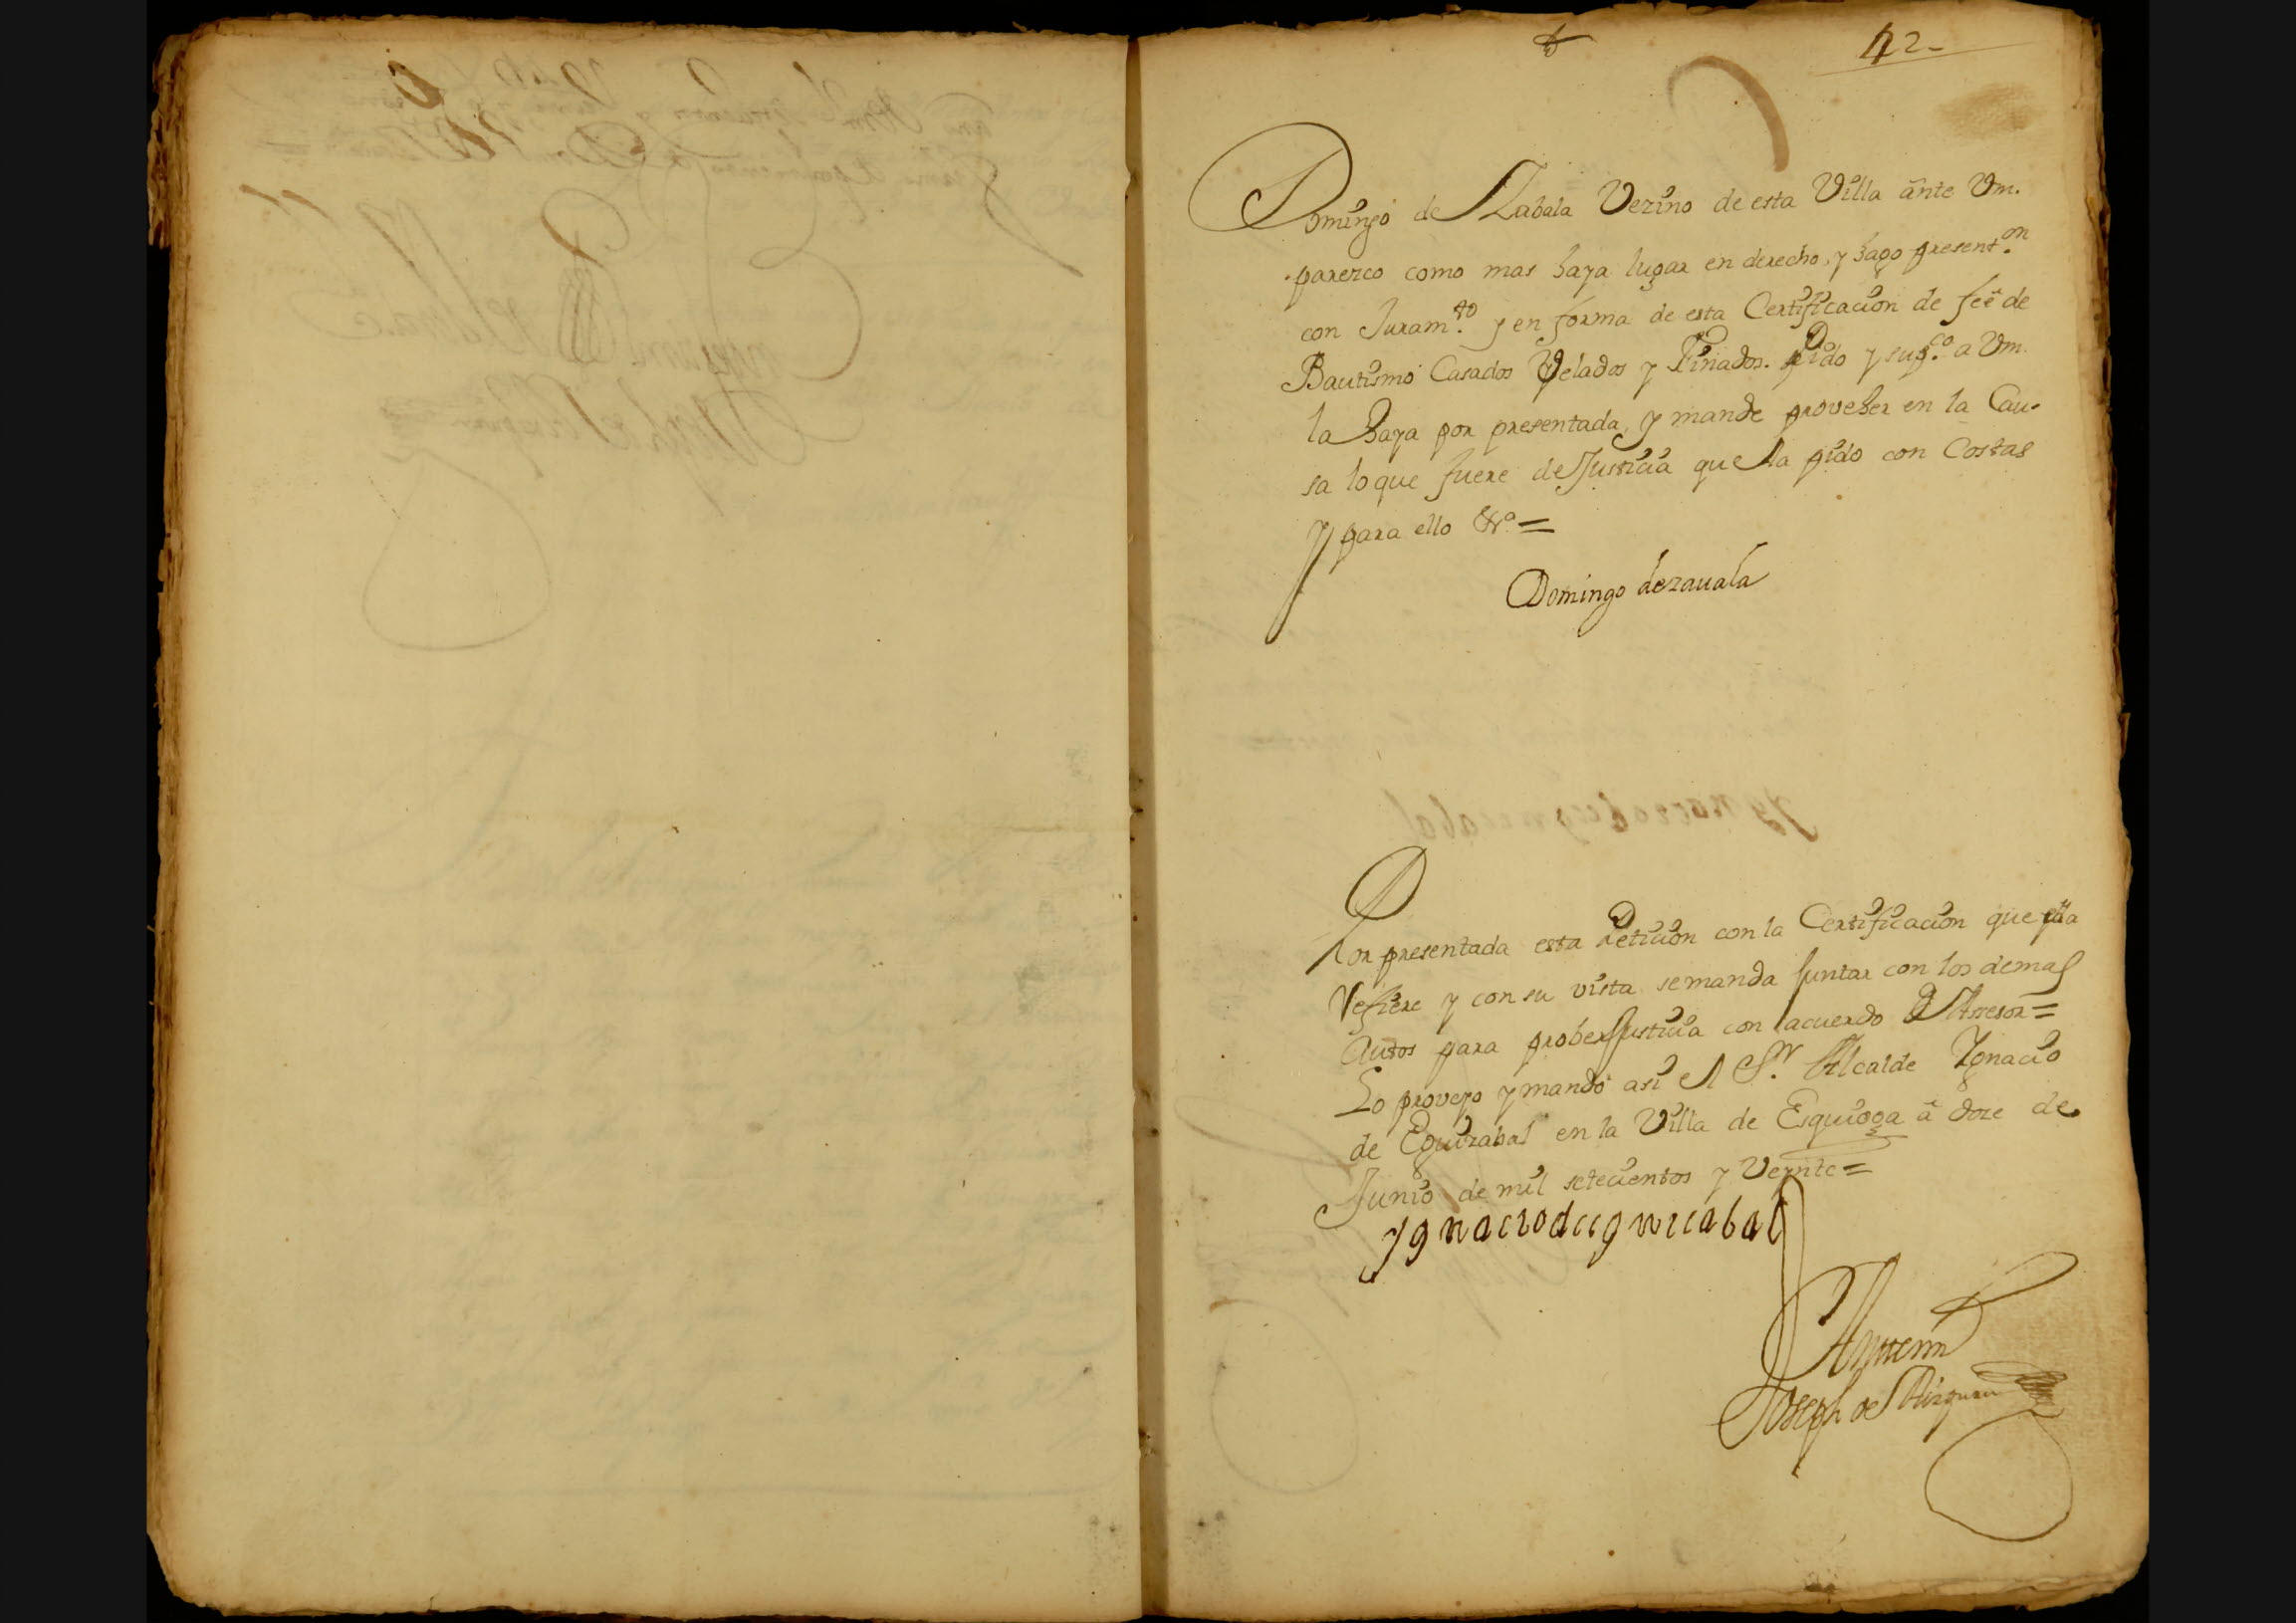 42
Domingo de Zabala Vezino de esta Villa ante Vm.
parezco como mas haya lugar en derecho, y hago present.on
con Juram.to y en forma de esta Certificacion de feé de
Bautismo Casados Velados y Finados. Pido y sup.co a Vm.
la haya por presentada, y mande proveher en la Cau-
sa lo que fuere de Justicia que la pido con Costas
y para ello &a =
Domingo dezauala
Por presentada esta Peticion con la Certificacion que
Refiere y con su vista se manda Juntar con los demas
Autos para prober Justicia con acuerdo de Assesor =
Lo proveyo y mandó asi el S.r Alcalde Ygnacio
de Eguizabal en la Villa de Esquioga á doze de
Junio de mil setecientos y Veynte =
Ygnacio de eguicabal
Antemi
Joseph de Aizpuru